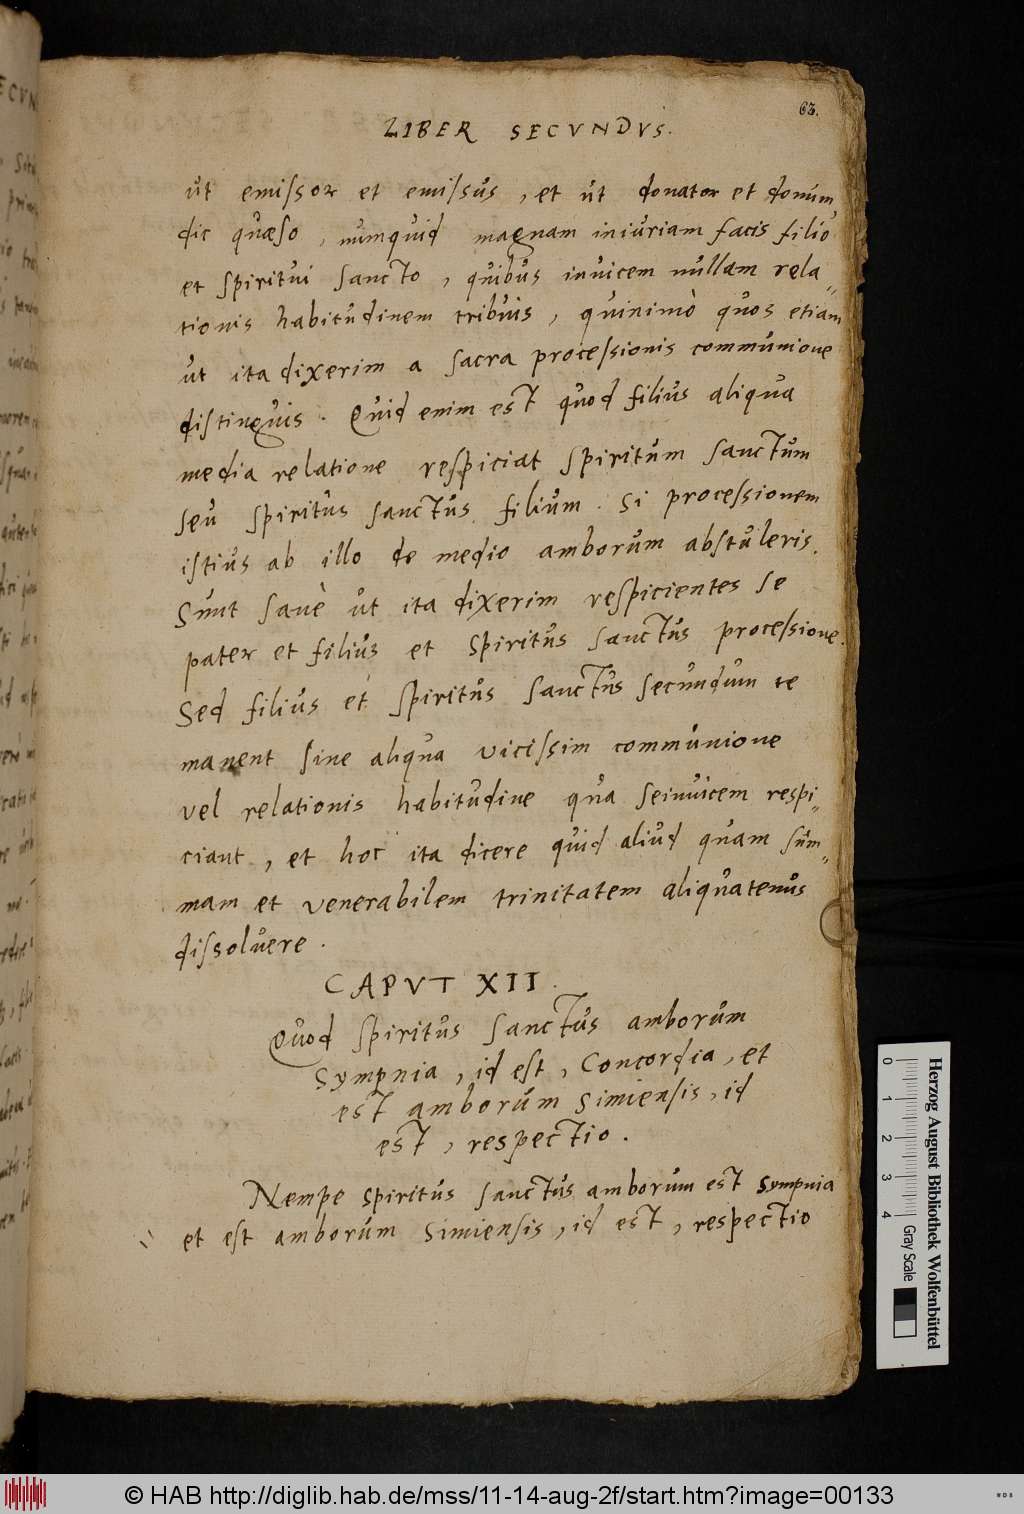 63.
LIBER SECVNDVS.
ut emissor et emissus, et ut donator et donum
dic quæso, numquid magnam iniuriam facis filio
et spiritui sancto, quibus inuicem nullam rela„
tionis habitudinem tribuis, quinimò quos etiam
ut ita dixerim a sacra processionis communione
distinguis. Quid enim est quod filius aliqua
media relatione respiciat spiritum sanctum
seu spiritus sanctus filium. Si processionem
istius ab illo de medio amborum abstuleris.
Sunt sanè ut ita dixerim respicientes se
pater et filius et spiritus sanctus processione.
Sed filius et spiritus sanctus secundum te
manent sine aliqua vicissim communione
vel relationis habitudine qua seinuicem respi„
ciant, et hoc ita dicere quid aliud quam sum„
mam et venerabilem trinitatem aliquatenus
dissoluere.
CAPVT XII.
Quod spiritus sanctus amborum
Sympnia, id est, Concordia, et
est amborum Simiensis, id
est, respectio.
Nempe spiritus sanctus amborum est Sympnia
et est amborum Simiensis, id est, respectio
Herzog August Bibliothek Wolfenbüttel
0 1 2 3 4 Gray Scale
© HAB http://diglib.hab.de/mss/11-14-aug-2f/start.htm?image=00133